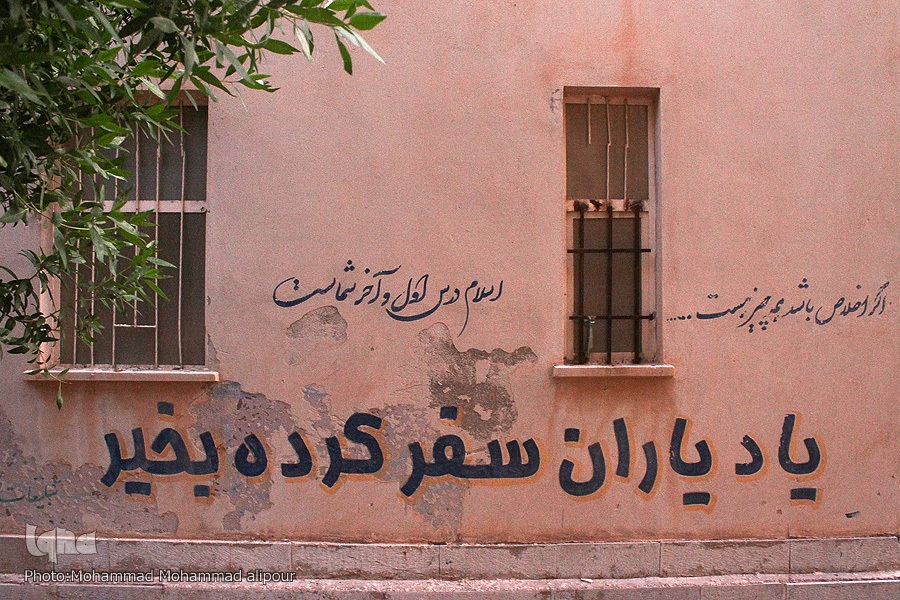 اگر اخلاص باشد همه چیز هست .....
اسلام درس اول و آخر شماست
یاد یاران سفر کرده بخیر
تبلیغات
iqna
Photo:Mohammad Mohammad alipour